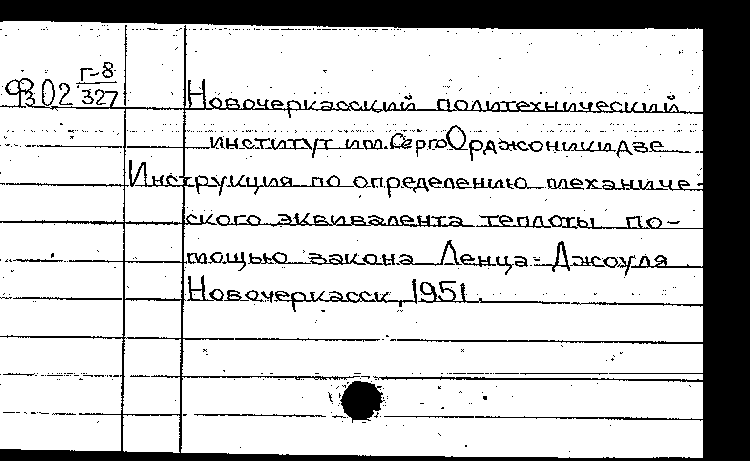 Г-8
9302 327
Новочеркасский политехнический
институт им. Серго Орджоникидзе
Инструкция по определению механиче-
ского эквивалента теплоты по-
мощью закона Ленца-Джоуля
Новочеркасск, 1951.